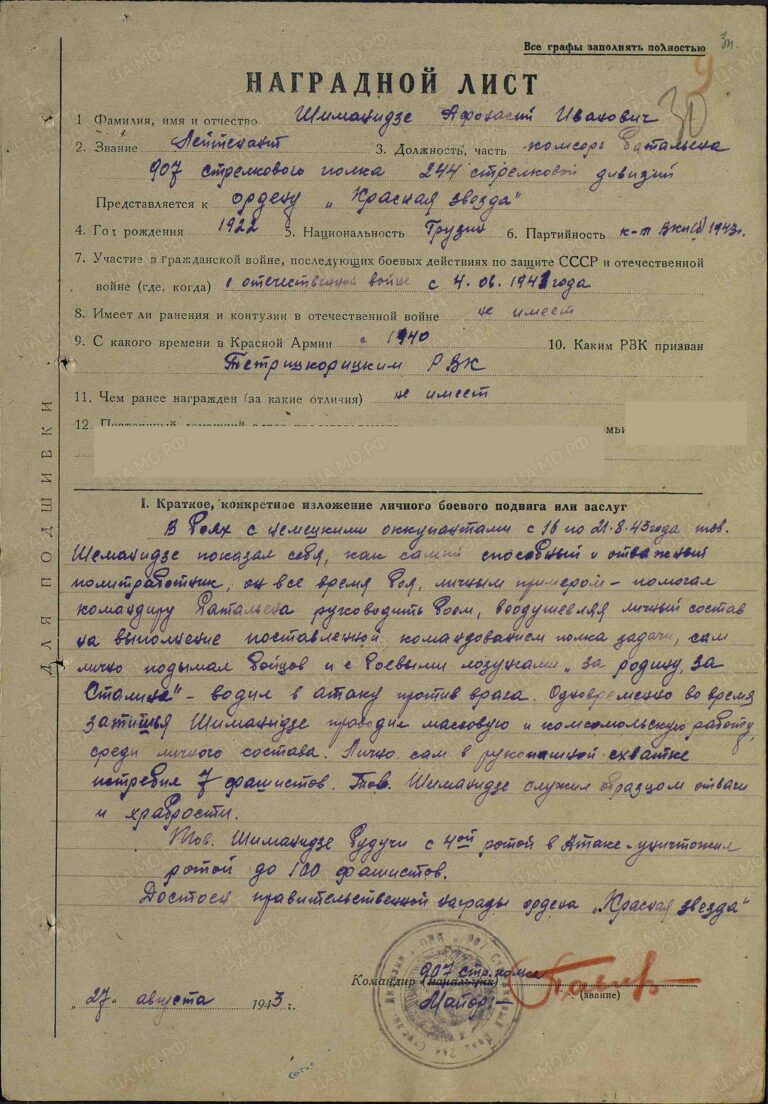 Все графы заполнять полностью
9
30
НАГРАДНОЙ ЛИСТ
1 Фамилия, имя и отчество Шиманидзе Афонасий Иванович
2. Звание Лейтенант 3. Должность, часть комсорг батальена
907 стрелкового полка 244 стрелковой дивизии
Представляется к ордену „Красная звезда"
4. Год рождения 1922 5. Национальность Грузин 6. Партийность к-т ВКП(б) 1943г.
7. Участие в гражданской войне, последующих боевых действиях по защите СССР и отечественной
войне (где, когда) в отечественной войне с 4.06.1942 года
8. Имеет ли ранения и контузии в отечественной войне не имеет
9. С какого времени в Красной Армии с 1940 10. Каким РВК призван
Тетрицкорицким РВК
11. Чем ранее награжден (за какие отличия) не имеет
12.
ДЛЯ ПОДШИВКИ
I. Краткое, конкретное изложение личного боевого подвига или заслуг
В боях с немецкими оккупантами с 16 по 21.8.43 года тов.
Шеманидзе показал себя, как самый способный и отважный
политработник, он все время боя, личным примером – помогал
командиру батальена руководить боем, воодушевляя личный состав
на выполнение поставленной командованием полка задачи, сам
лично подымал бойцов и с боевыми лозунгами „за родину, за
Сталина" – водил в атаку против врага. Одновременно во время
затишья Шиманидзе проводил массовую и комсомольскую работу
среди личного состава. Лично сам в рукопашной схватке
истребил 7 фашистов. Тов. Шиманидзе служил образцом отваги
и храбрости.
Тов. Шиманидзе будучи с 4ой ротой в Атаке – уничтожил
ротой до 100 фашистов.
Достоен правительственной награды ордена „Красная звезда"
907 стр. полка
Командир (начальник)
Майор –
(звание)
„27„ августа 1943 г.